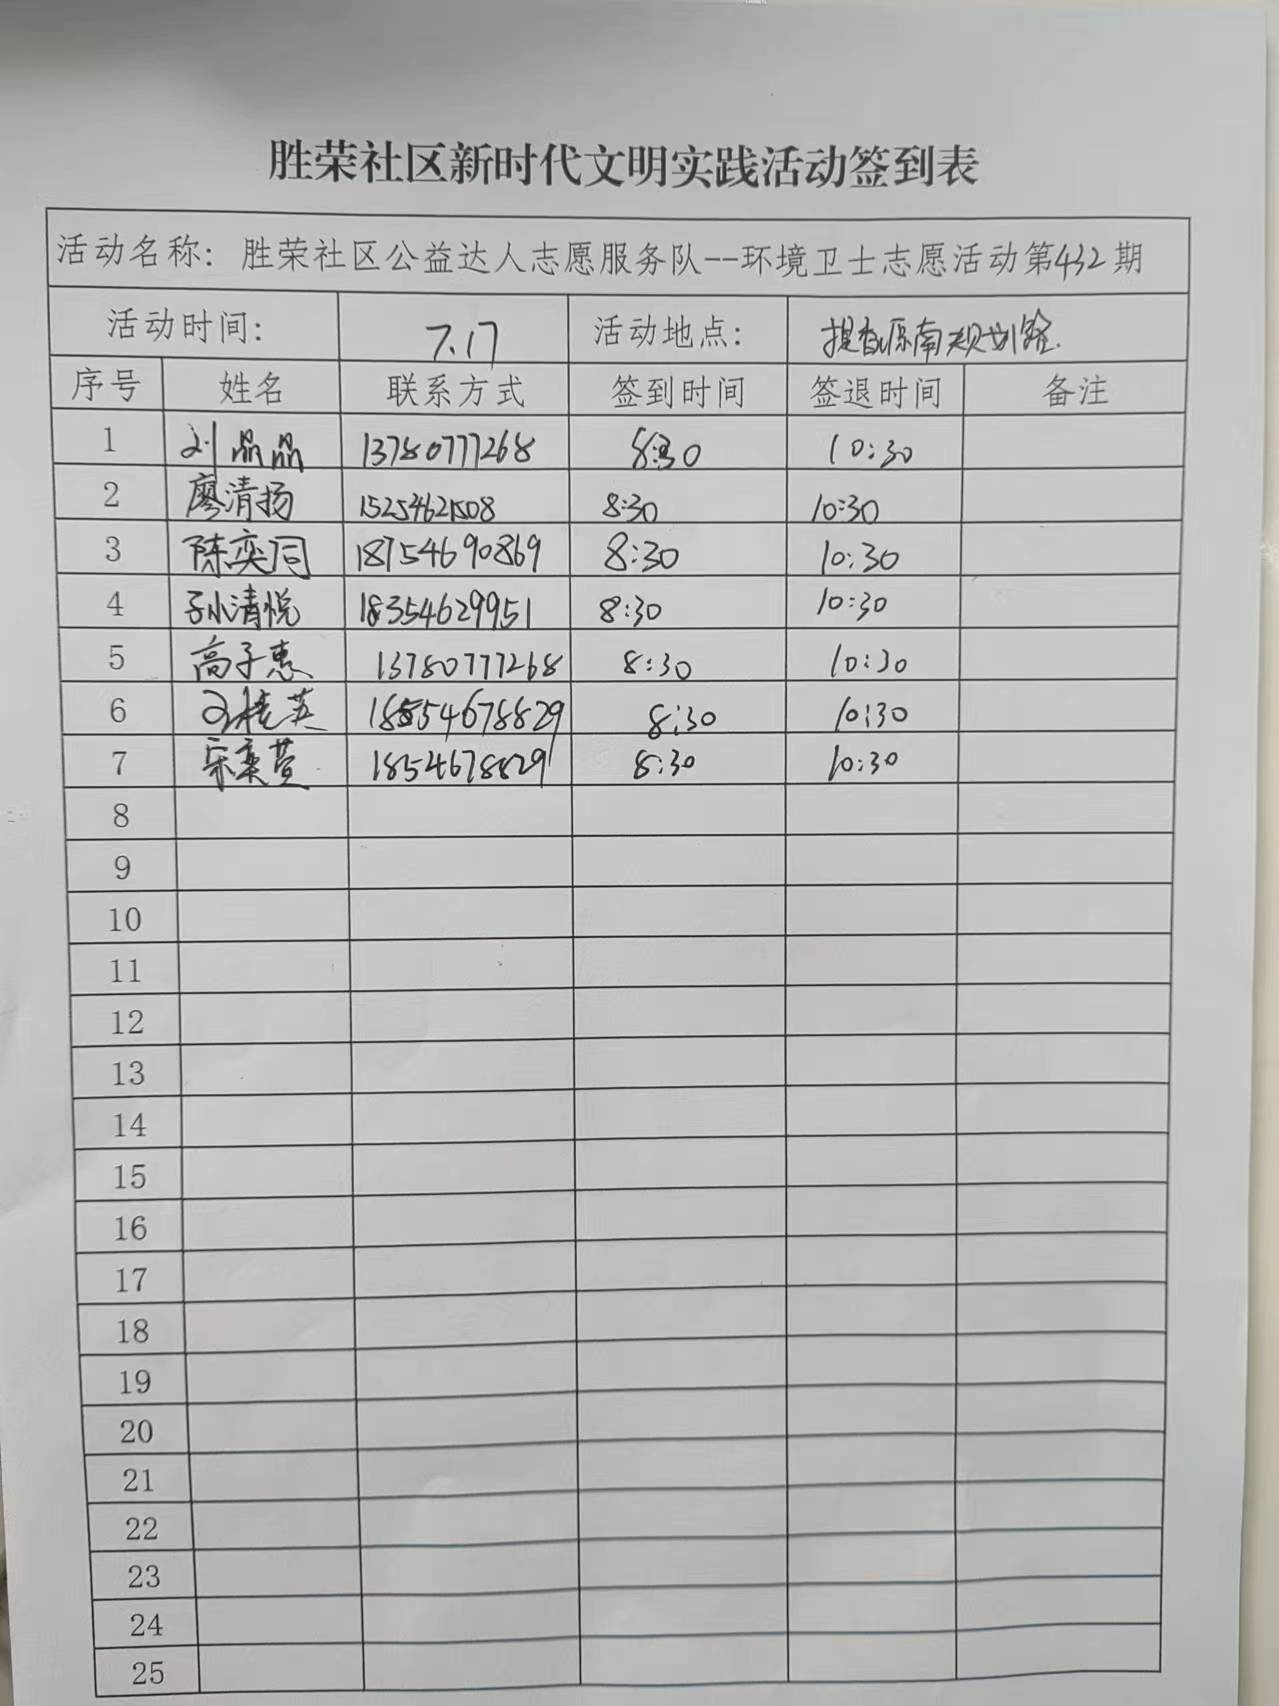 胜荣社区新时代文明实践活动签到表
活动名称: 胜荣社区公益达人志愿服务队--环境卫士志愿活动第432期
活动时间: 7.17 活动地点: 提香溪原南规划路
序号 姓名 联系方式 签到时间 签退时间 备注
1 刘晶晶 13780777268 8:30 10:30
2 廖清扬 15254621508 8:30 10:30
3 陈奕同 18754690869 8:30 10:30
4 孙清悦 18354629951 8:30 10:30
5 高子惠 13780777268 8:30 10:30
6 桂英 18554678829 8:30 10:30
7 宋奕萱 1854678829 8:30 10:30
8
9
10
11
12
13
14
15
16
17
18
19
20
21
22
23
24
25